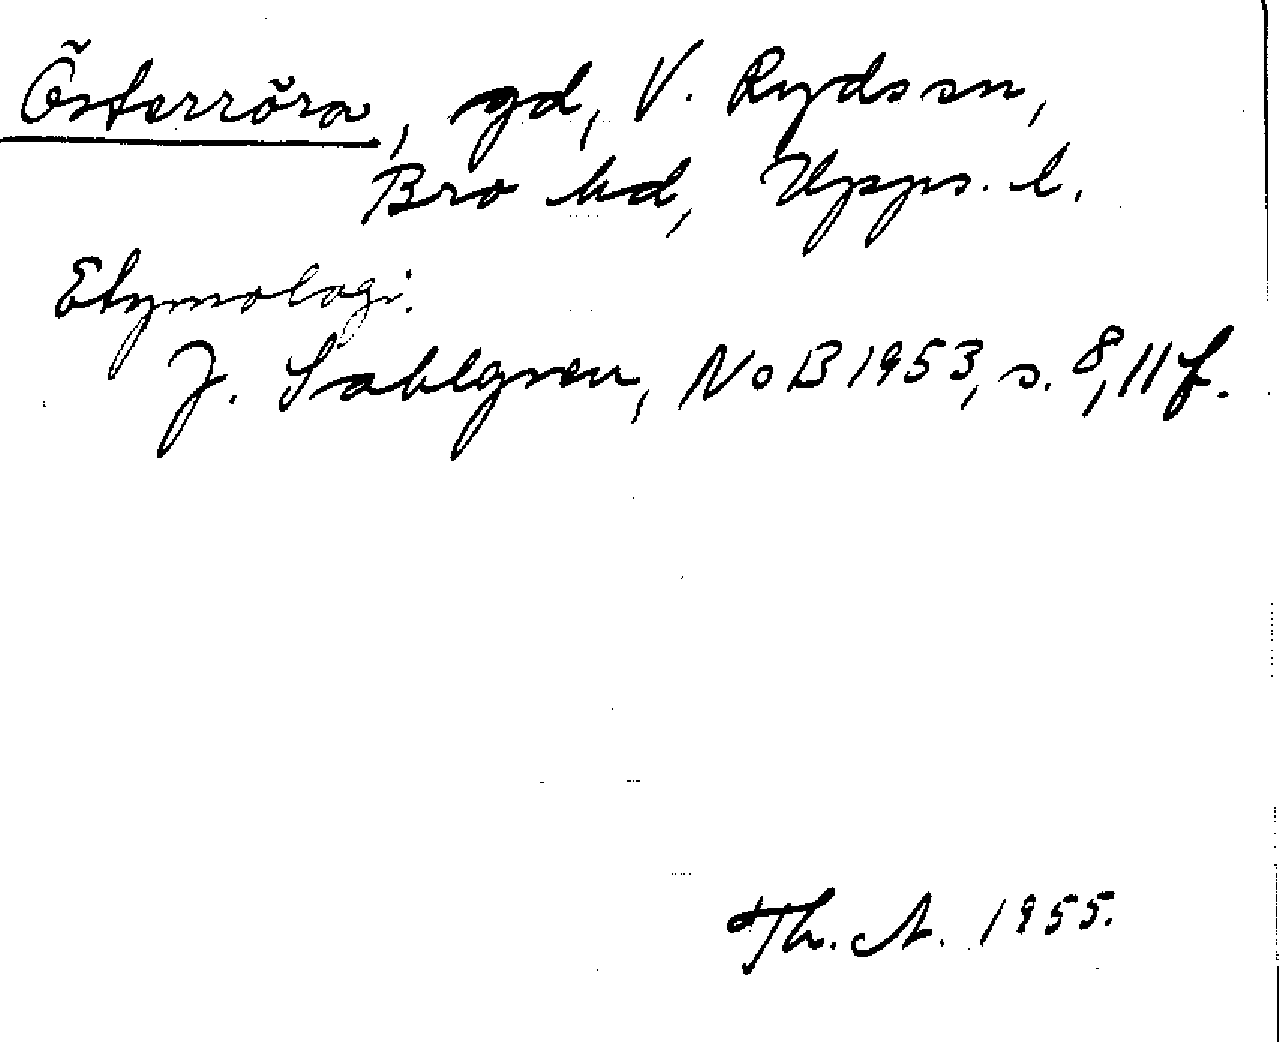 Österröra, gd, V. Ryds sn,
Bro hd, Upps. l.
Etymologi.
J. Sahlgren, NoB 1953, s. 8, 11 f.
Th. A. 1955.